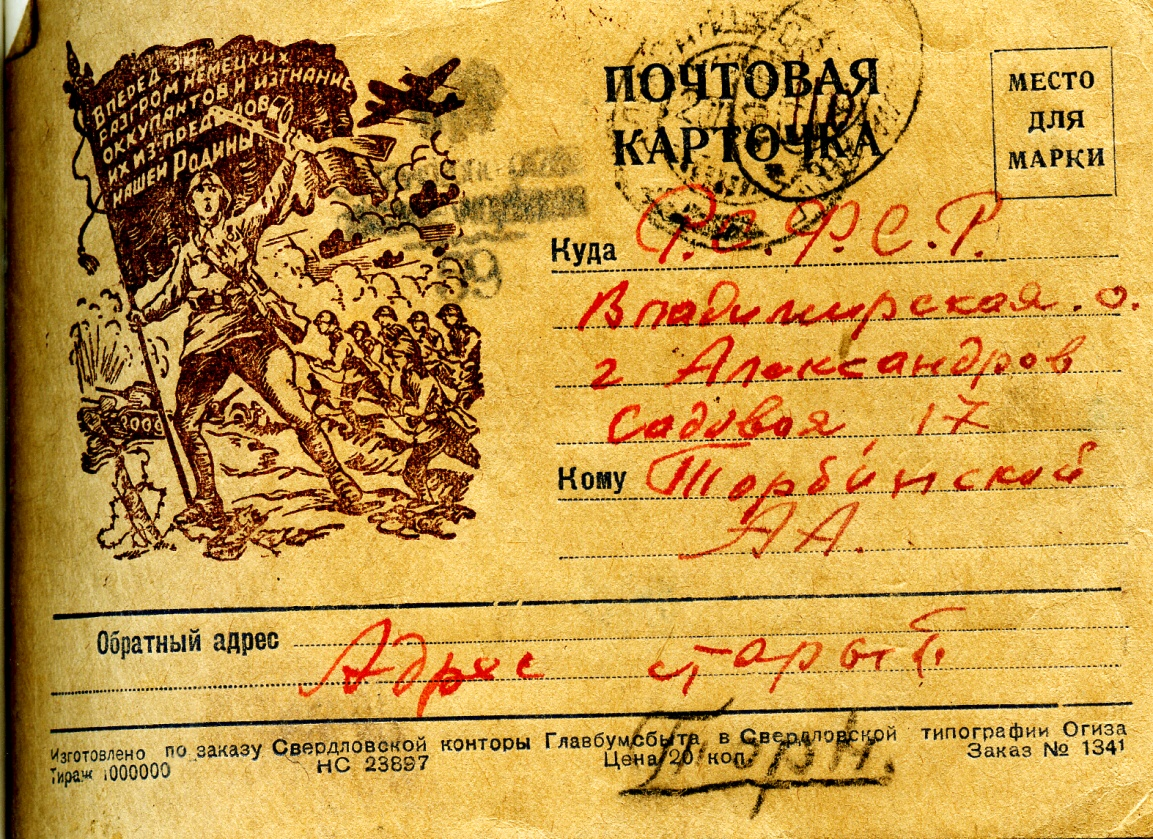 Вперед за
разгром немецких
оккупантов и изгнание
их из пределов
нашей Родины!
ПОЧТОВАЯ
КАРТОЧКА
МЕСТО
ДЛЯ
МАРКИ
Куда Р.С.Ф.С.Р.
Владимирская о.
г Александров
Садовая, 17
Кому Торбинский
АА.
Обратный адрес
Адрес старый
Изготовлено по заказу Свердловской конторы Главбумсбыта в Свердловской типографии Огиза
Тираж 1000000 НС 23897 Цена 20 коп. Заказ № 1341